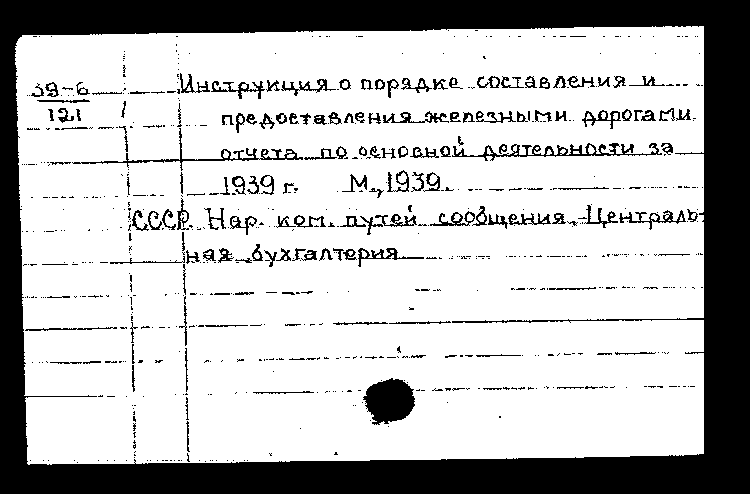 39-6
121
Инструкция о порядке составления и
предоставления железными дорогами
отчета по основной деятельности за
1939 г. М., 1939.
СССР. Нар. ком. путей сообщения. Централь-
ная бухгалтерия